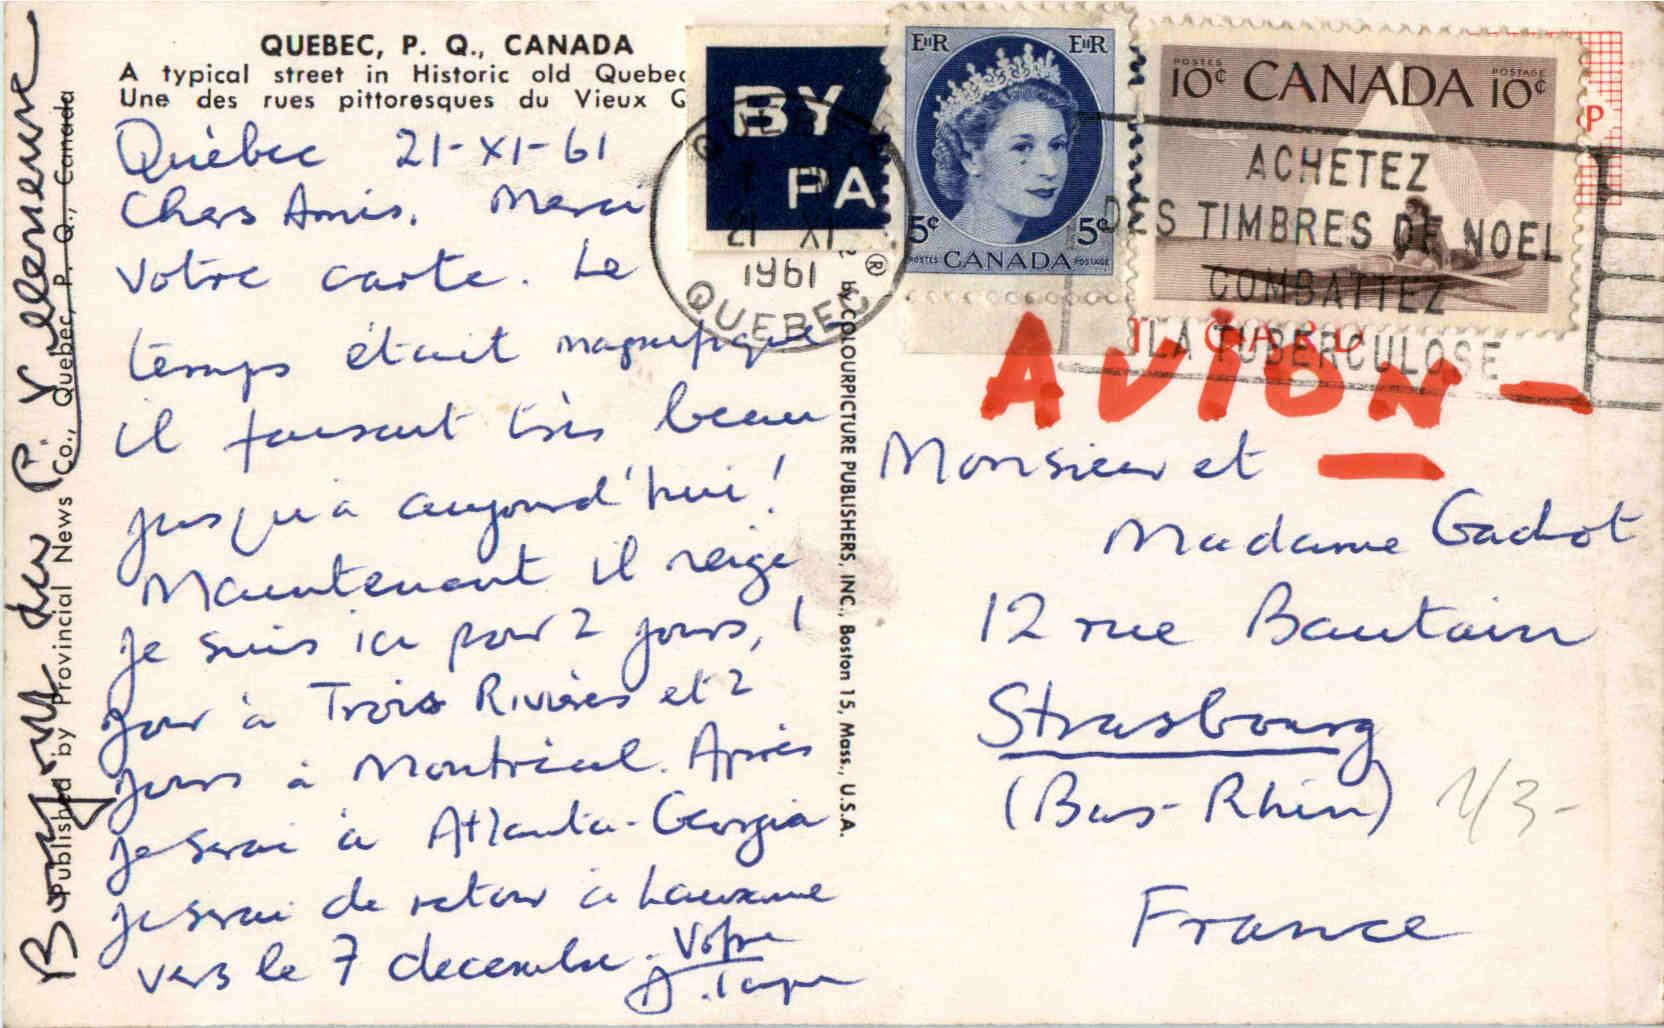 QUEBEC, P. Q., CANADA
A typical street in Historic old Quebec
Une des rues pittoresques du Vieux Q
Québec 21-XI-61
Chers Amis. Merci
votre carte. Le
temps était magnifique
il faisait très beau
jusqu'à aujourd'hui!
Maintenant il neige
Je suis ici pour 2 jours, 1
jour à Trois Rivières et 2
jours à Montréal. Après
je serai à Atlanta-Georgia
je serai de retour à Lausanne
vers le 7 decembre. Votre
Published by Provincial News Co., Quebec, P. Q., Canada
by COLOURPICTURE PUBLISHERS, INC., Boston 15, Mass., U.S.A.
®
BY
PA
21 XI
1961
QUEBEC
EIIR EIIR
5¢ 5¢
POSTES CANADA POSTAGE
POSTES POSTAGE
10¢ CANADA 10¢
P
ACHETEZ
DES TIMBRES DE NOEL
COMBATTEZ
LA TUBERCULOSE
AVION
Monsieur et
Madame Gachot
12 rue Bautain
Strasbourg
(Bas-Rhin)
1/3-
France